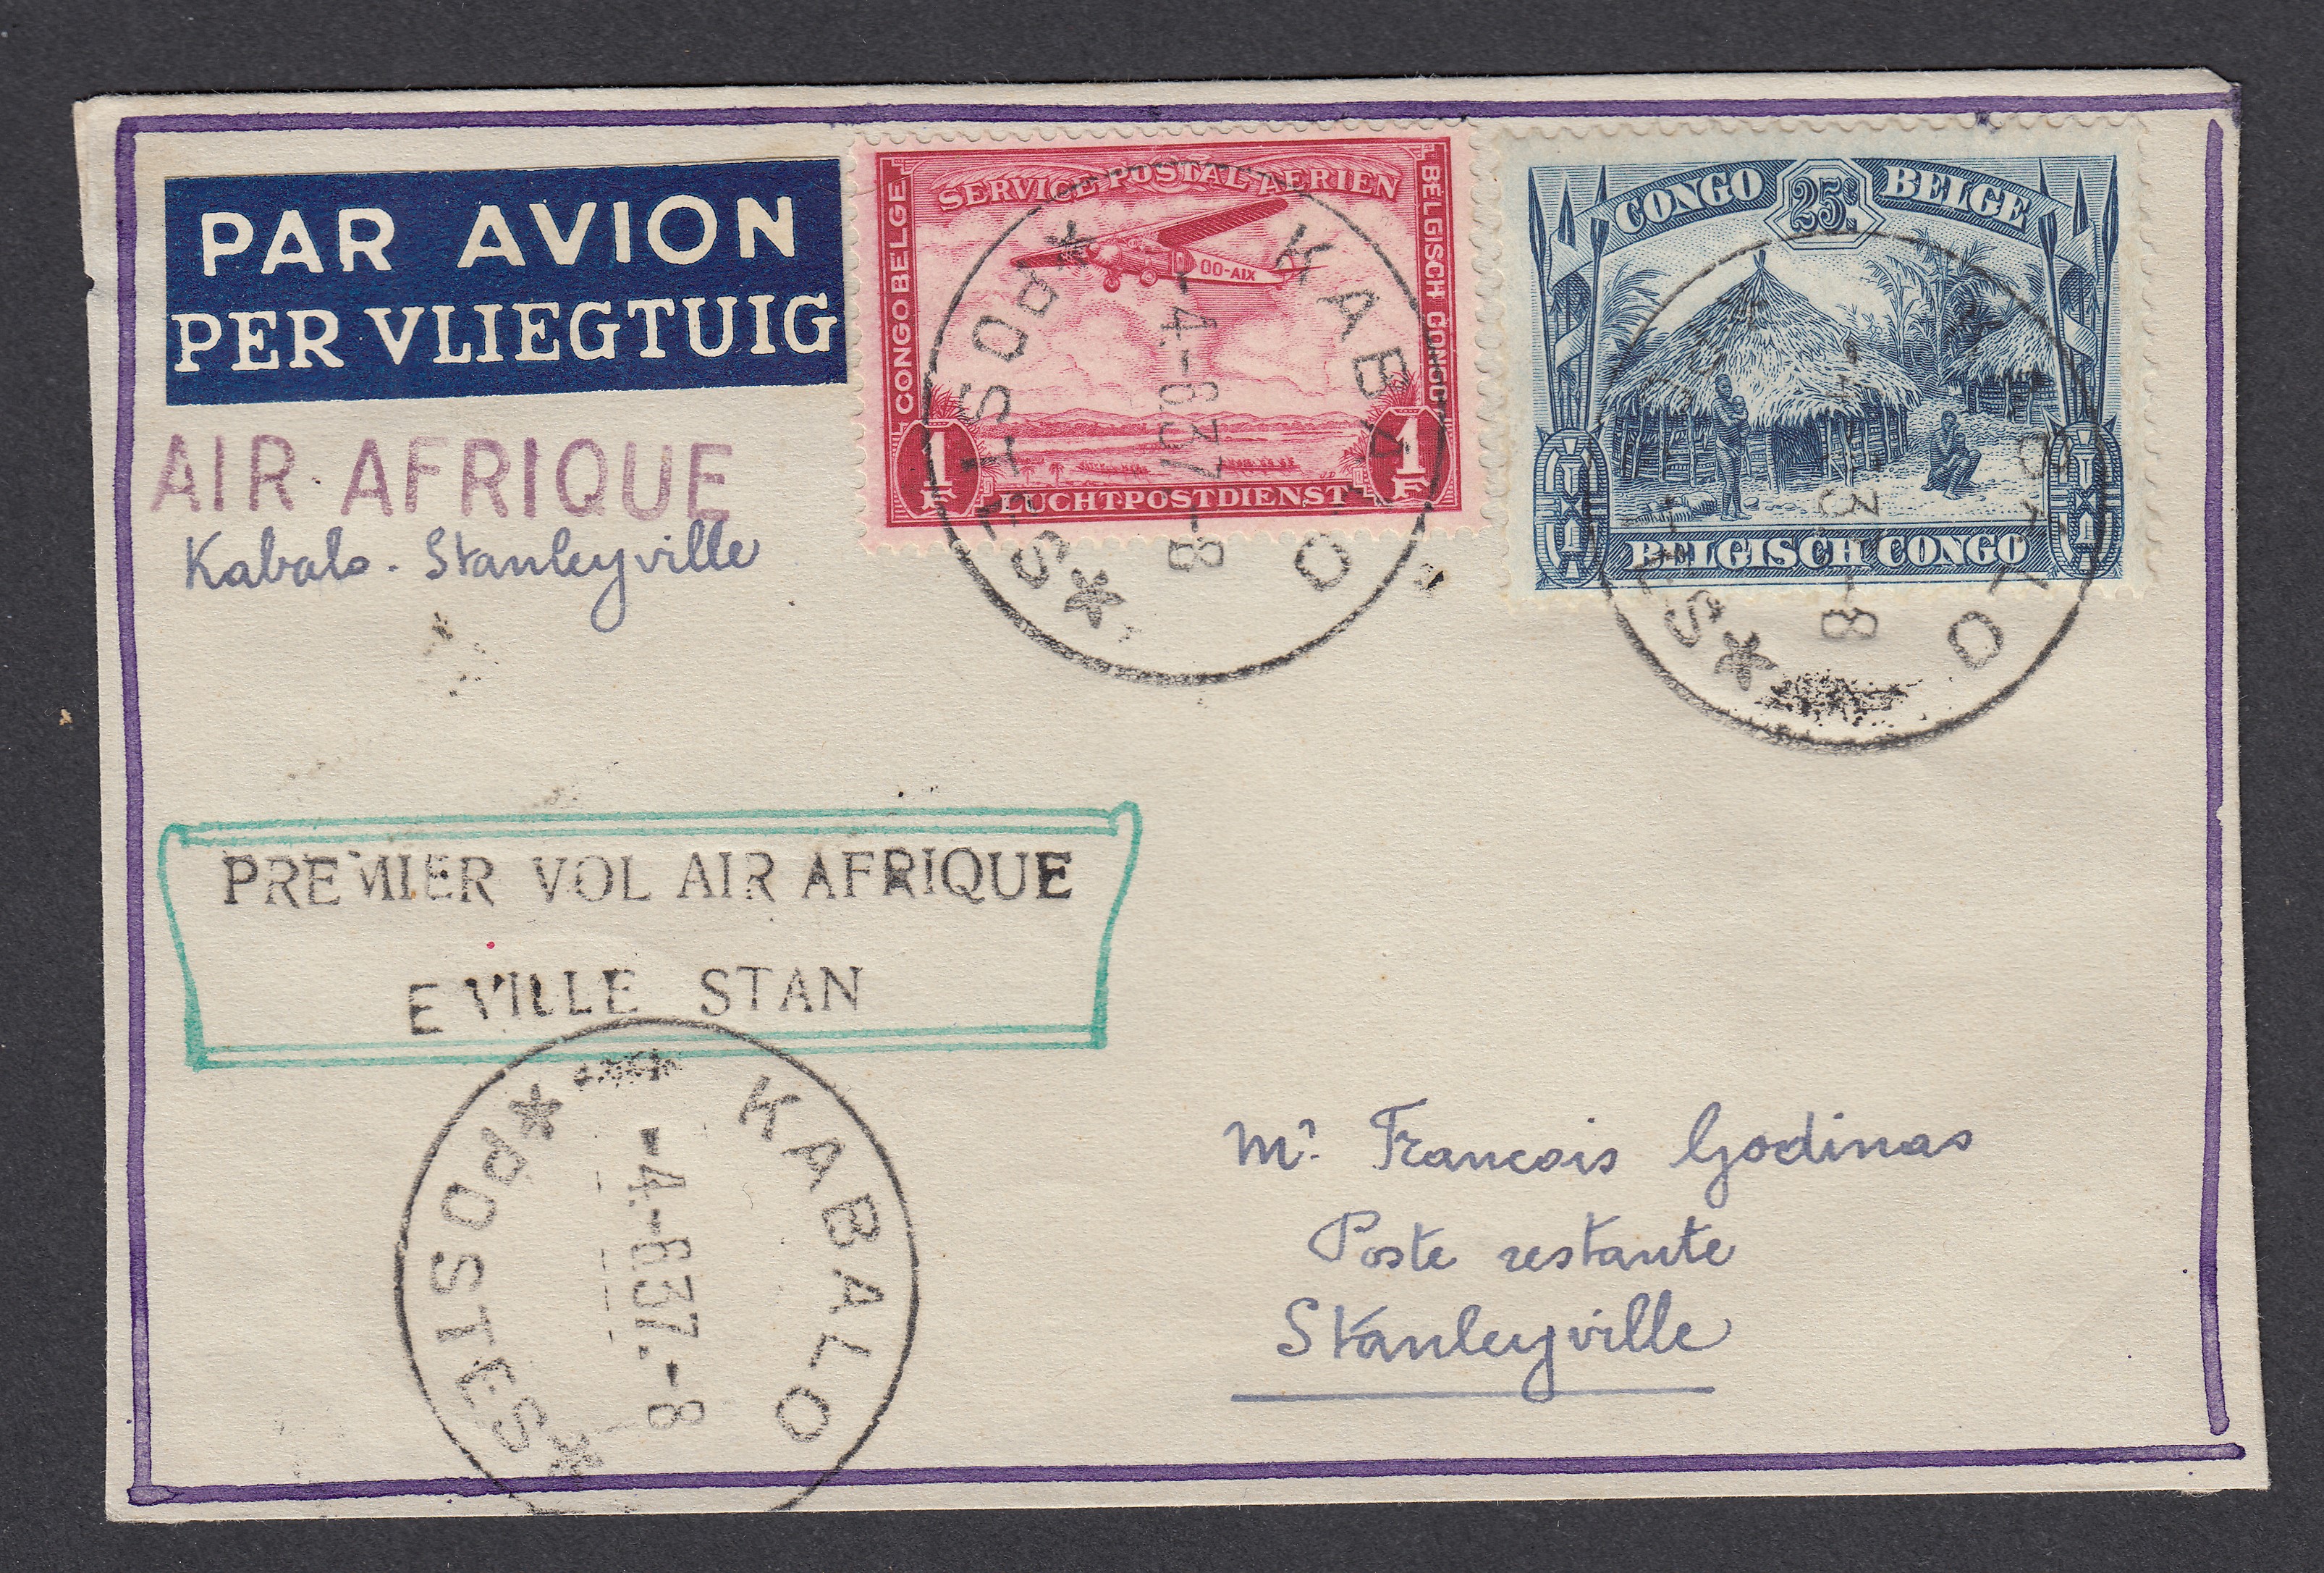 PAR AVION
PER VLIEGTUIG
AIR AFRIQUE
Kabalo - Stanleyville
SERVICE POSTAL AERIEN
CONGO BELGE
BELGISCH CONGO
OO-AIX
1 F
1 F
LUCHTPOSTDIENST
KABALO
-4-6.37-8
*POSTES*
CONGO 25c BELGE
BELGISCH CONGO
PREMIER VOL AIR AFRIQUE
E VILLE STAN
KABALO
-4.-6.37.-8
*POSTES*
Mr. Francois Godinas
Poste restante
Stanleyville